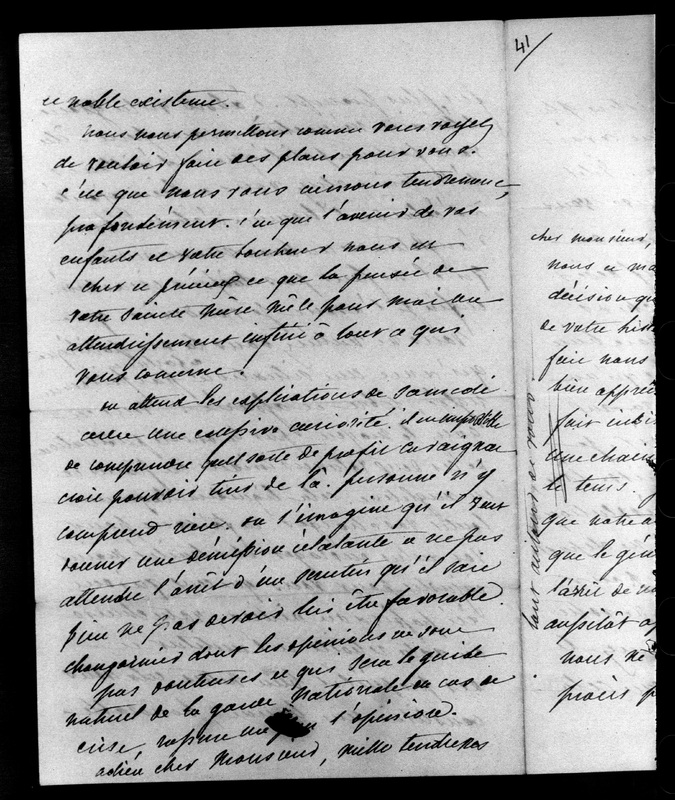 41
noble existence.
nous nous permettons comme vous voyez
de vouloir faire des plans pour vous.
c'est que nous vous aimons tendrement,
profondément. c'est que l'avenir de vos
enfants et votre bonheur nous est
cher et précieux et que la pensée de
votre sainte mère mêle pour moi un
attendrissement infini à tout ce qui
vous concerne.
on attend les explications de samedi
avec une excessive curiosité. il est impossible
de comprendre quelle sorte de profit cavaignac
croit pouvoir tirer de là. personne n'y
comprend rien. on s'imagine qu'il veut
donner une démission éclatante et ne pas
attendre l'arrêt d'un scrutin qu'il sait
bien ne pas devoir lui être favorable.
changarnier dont les opinions ne sont
pas douteuses et qui sera le guide
naturel de la garde nationale en cas de
crise, rassure un peu l'opinion.
adieu cher Monsieur, mille tendresses
tout autour de vous
cher monsieur,
nous
décision
de votre
fait nous
bien
fait
une
le tems.
que notre
que le
l'arrêt de
aussitôt
nous ne
procès